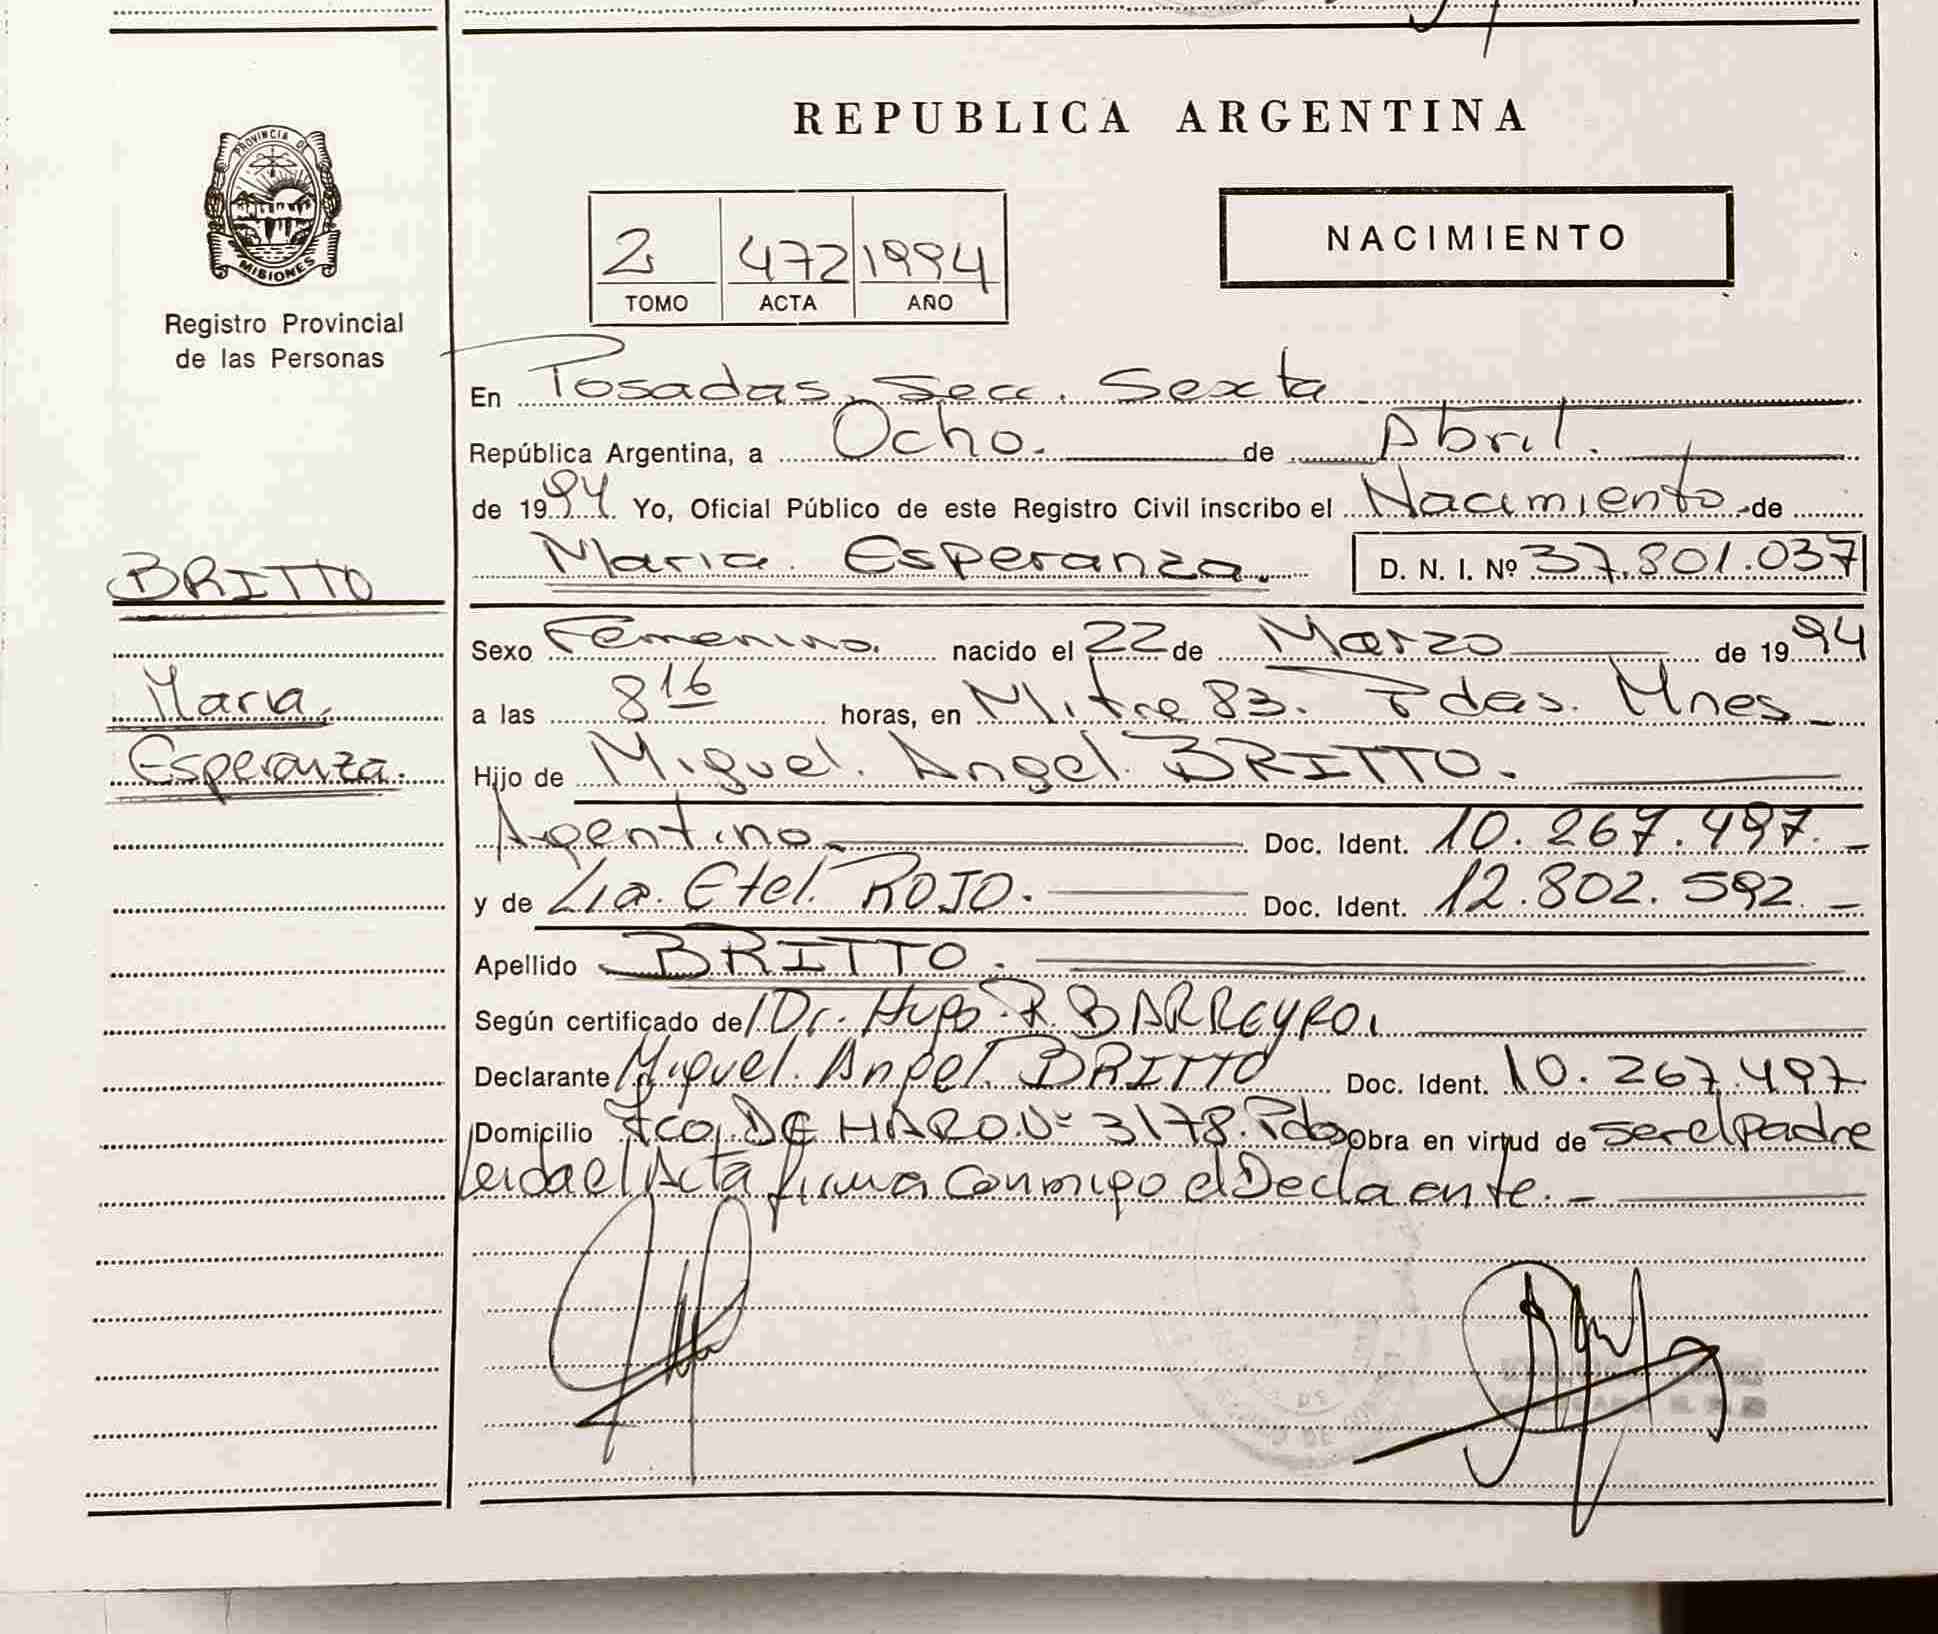 PROVINCIA DE
MISIONES
Registro Provincial
de las Personas
BRITTO
Maria
Esperanza.
REPUBLICA ARGENTINA
2 472 1994
TOMO ACTA AÑO
NACIMIENTO
En Posadas, Secc. Sexta
República Argentina, a Ocho. de Abril.
de 1994 Yo, Oficial Público de este Registro Civil inscribo el Nacimiento de
Maria Esperanza. D. N. I. Nº 37.801.037
Sexo Femenino. nacido el 22 de Marzo de 1994
a las 8 16 horas, en Mitre 83. Pdas. Mnes
Hijo de Miguel. Angel. BRITTO.
Agentino Doc. Ident. 10.267.497.
y de Lia. Etel. ROJO. Doc. Ident. 12.802.592
Apellido BRITTO.
Según certificado del Dr. Hugo R. BARREYRO.
Declarante Miguel. Angel. BRITTO Doc. Ident. 10.267.497
Domicilio Fco. DE HARO Nº 3178. Pdas Obra en virtud de ser el padre
Leida el Acta firma conmigo el Declaente.